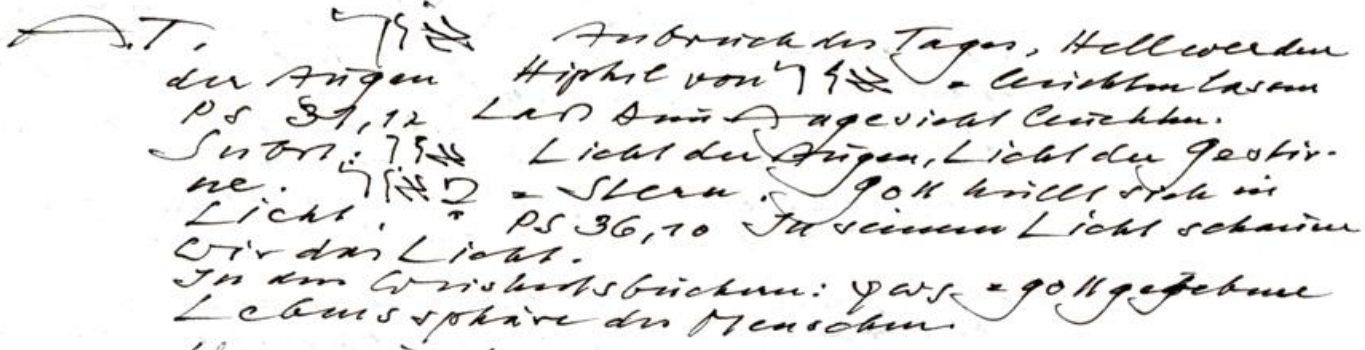 A.T. אור Anbruch des Tages, Hellwerden
der Augen Hiphil von אור = leuchten lassen
Ps 31,12 Laß Dein Angesicht leuchten.
Subst.: אור Licht der Augen, Licht der Gestir-
ne. מאור = Stern. Gott hüllt sich in
Licht. Ps 36,10 In seinem Licht schauen
wir das Licht.
In den Weisheitsbüchern: φως = gottgegebene
Lebenssphäre des Menschen.